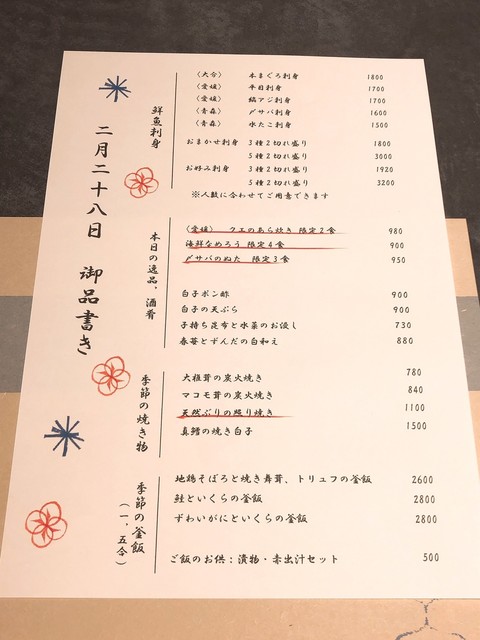 二月二十八日 御品書き
鮮魚刺身
〈大分〉 本まぐろ刺身 1800
〈愛媛〉 平目刺身 1700
〈愛媛〉 縞アジ刺身 1700
〈青森〉 〆サバ刺身 1600
〈青森〉 水たこ刺身 1500
おまかせ刺身 3種2切れ盛り 1800
5種2切れ盛り 3000
お好み刺身 3種2切れ盛り 1920
5種2切れ盛り 3200
※人数に合わせてご用意できます
本日の逸品、酒肴
〈愛媛〉 クエのあら炊き 限定2食 980
海鮮なめろう 限定4食 900
〆サバのぬた 限定3食 950
白子ポン酢 900
白子の天ぷら 900
子持ち昆布と水菜のお浸し 730
春菩とずんだの白和え 880
季節の焼き物
大椎茸の炭火焼き 780
マコモ茸の炭火焼き 840
天然ぶりの照り焼き 1100
真鱈の焼き白子 1500
季節の釜飯
(一、五合)
地鶏そぼろと焼き舞茸、トリュフの釜飯 2600
鮭といくらの釜飯 2800
ずわいがにといくらの釜飯 2800
ご飯のお供：漬物・赤出汁セット 500